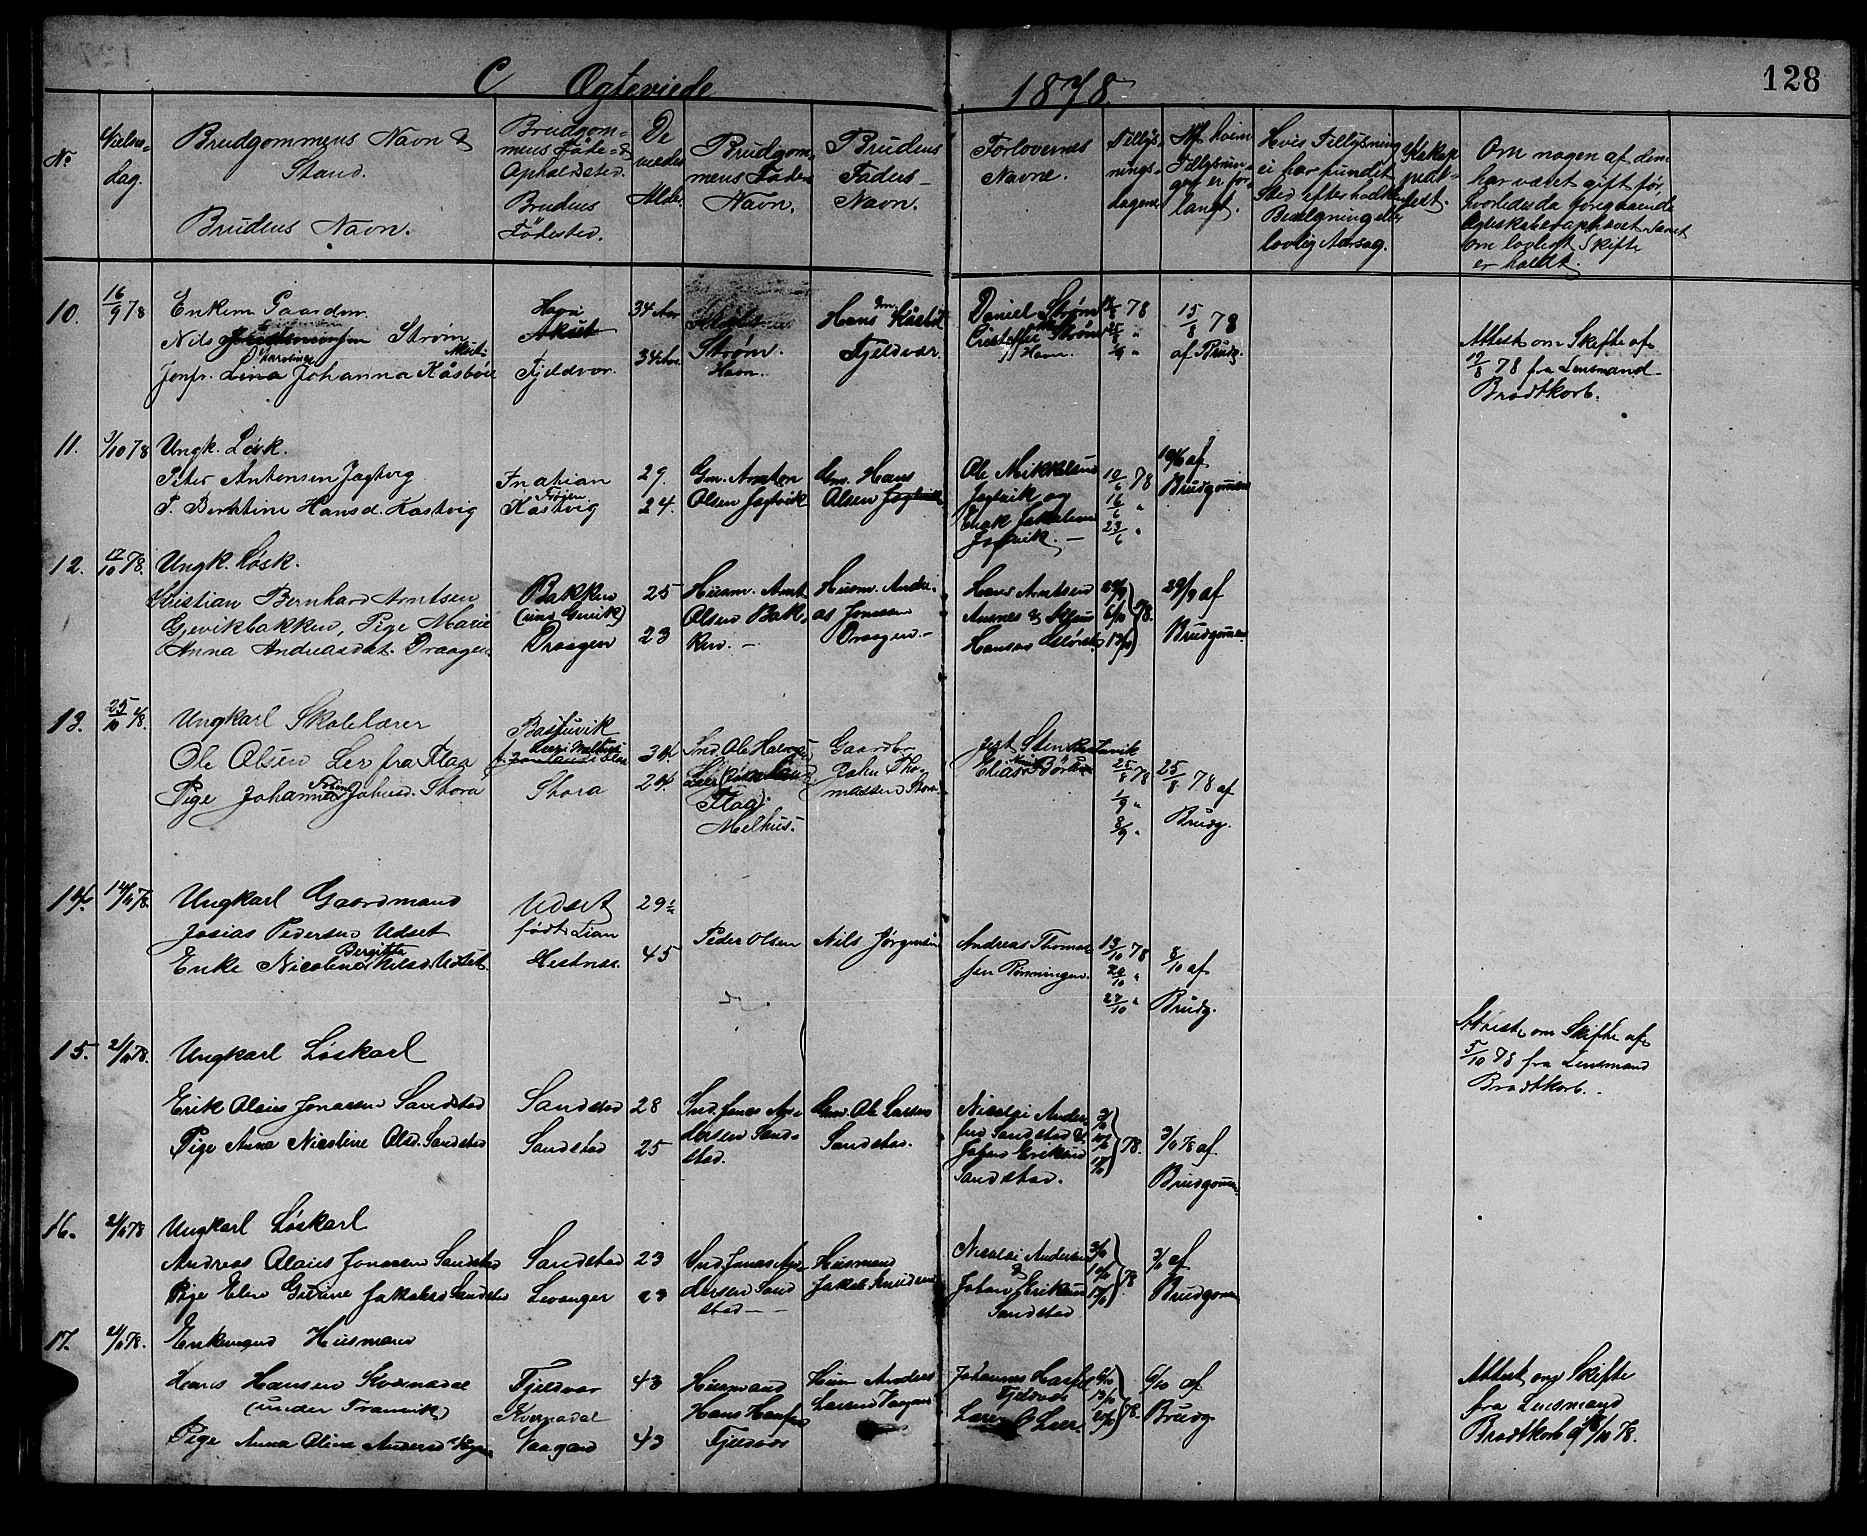 C Ægteviede 1878. 128
No
Vielses-
dag.
Brudgommens Navn &
Stand.
Brudens Navn.
Brudgom-
mens Føde- &
Opholdsted.
Brudens
Fødested.
De
viedes
Alder.
Brudgom-
mens Faders
Navn.
Brudens
Faders
Navn.
Forlovernes
Navne.
Tillys-
nings-
dagene
Af hvem
Tillysnin-
gen er for-
langt.
Hvis Tillysning
ei har fundet
Sted efter hvilken
Bevilgning eller
lovlig Aarsag.
Om nogen af dem
har været gift før,
hvorledes da foregaaende
Ægteskab er ophævet samt
om lovligt Skifte
er holdt.
10. 16/9 78
Enkem. Gaardm.
Nils Strøm
Jonfr. Lina Johanna Kåsbøl
Havn
Fjeldvær.
34 Aar
34 Aar
Strøm.
Havn.
Hans Kåsbøl
Fjeldvær.
Daniel Strøm
Strøm
Havn.
15/8 78
af Brudg.
Attest om Skifte af
17/8 78 fra Lensmand
Brodtkorb.
11. 3/10 78
Ungk. Løsk.
Peter Antonsen Jagtvig
P. Berntine Hansd. Kastvig
Kastvig
29.
24.
Gm. Anton
Olsen Jagtvik
Gm. Hans
Olsen Jagtvik
Ole Mikkelsen
Jagtvik og
Jagtvik.
10/6 78
16/6 "
23/6 "
10/6 af
Brudgommen
12. 17/10 78.
Ungk. Løsk.
Kristian Bernhard Arntsen
Gjevikbakken, Pige Marie
Anna Andreasdat. Draagen
Bakken
(und. Gievik)
Draagen
25
23
Husm. Arnt
Olsen Bak-
ken.
Husm. Andre-
as Jonsen
Draagen
Hans Arntsen
Hansen
29/9
6/10
13/10 78.
29/9 af
Brudgommen
13. 25/10 78
Ungkarl Skolelærer
Ole Olsen Ler fra Flaa
Pige Johanna Johnsd. Stora
Bastuvik
Stora
34.
24.
Ind. Ole
Flaa.
Melhus.
Gaardbr.
John Tho-
massen Stora.
Sten Bastuvik
Elias
25/8 78
1/9 "
8/9 "
25/8 78 af
Brudg.
14. 14/11 78.
Ungkarl Gaardmand
Josias Pedersen Udset
Bergitta
Enke Nicoline Nilsd. Udset
Udset
født Lian
Hestnes.
29½
45
Peder Olsen
Nils Jørgensen
Andreas Thomas-
sen Rønningen.
13/10 78
20/10 "
27/10 "
8/10 af
Brudg.
Attest om Skifte af
5/10 78 fra Lensmand
Brodtkorb.
15. 21/11 78.
Ungkarl Løskarl
Erik Olaus Jonassen Sandstad
Pige Anna Nicoline Olsd. Sandstad
Sandstad
Sandstad
28
25
Ind. Jonas An-
dersen Sand-
stad.
Gm. Ole Larsen
Sandstad.
Nicolai Ander-
sen Sandstad &
Johan Eriksen
Sandstad.
3/11
10/11
17/11 78.
3/11 78 af
Brudgommen.
16. 21/11 78
Ungkarl Løskarl
Andreas Olaus Jonassen Sandstad
Pige Elen Gurine Jakobsd Sandstad
Sandstad
Levanger
23
23
Ind. Jonas An-
dersen Sand
stad
Husmand
Jakob Knudsen
Nicolai Andersen
&
Johan Eriksen
Sandstad
3/11
10/11
17/11 78
3/11 af
Brudgommen
17. 21/11 78.
Enkemand Husmand
Hans Hansen Kvernadal
(under Tranvik)
Pige Anna Olina Andersd Vaagan
Fjeldvær
Kvernadal
Vaagan
43
43
Husmand
Hans Hansen
Fjeldvær
Husm Anders
Larsen Vaagan
Johannes
Fjeldvær
6/10
13/10
20/10 78.
6/10 af
Brudg.
Attest om Skifte
fra Lensmand
Brodtkorb af /10 78.